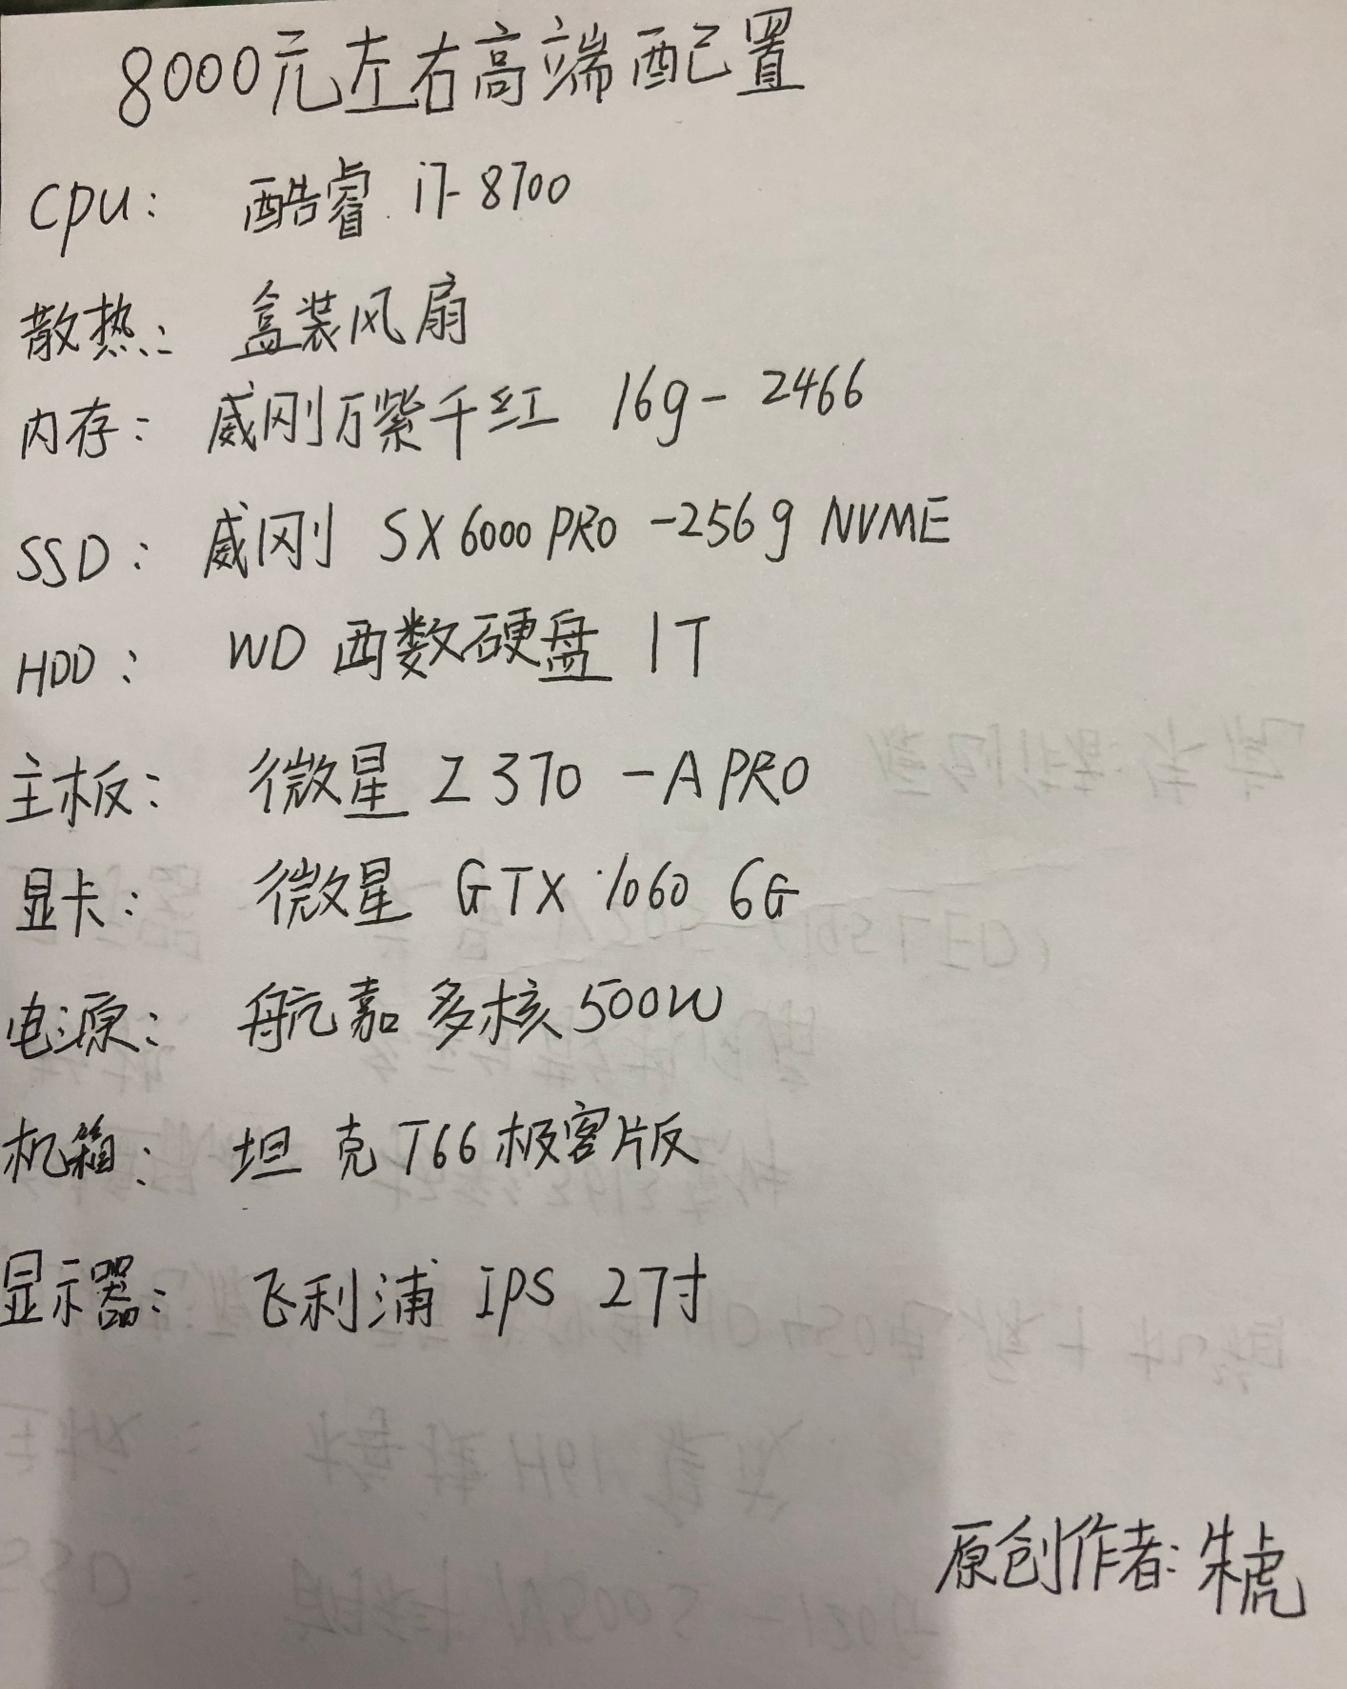 8000元左右高端配置
CPU: 酷睿 i7-8700
散热: 盒装风扇
内存: 威刚万紫千红 16g-2466
SSD: 威刚 SX6000PRO-256g NVME
HDD: WD 西数硬盘 1T
主板: 微星 Z370-A PRO
显卡: 微星 GTX 1060 6G
电源: 航嘉 多核500W
机箱: 坦克T66极客版
显示器: 飞利浦 IPS 27寸
原创作者: 朱虎